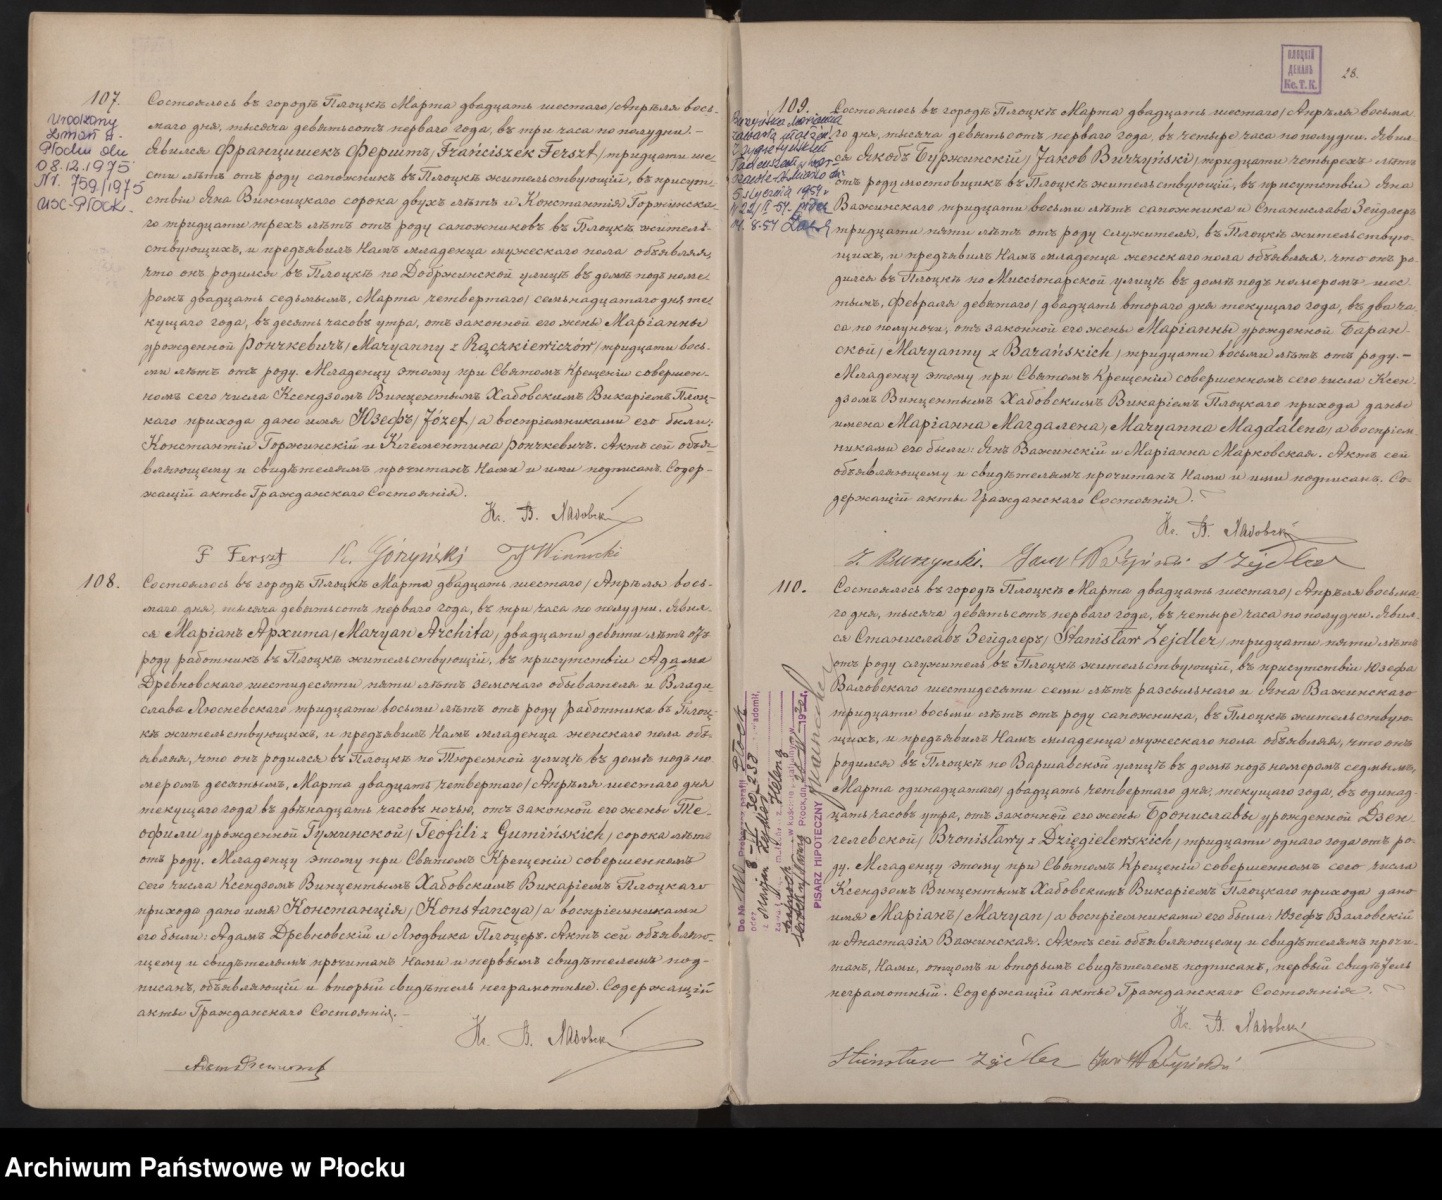 107.
Urodzony
zmarł w
Płocku dn.
08.12.1975
Nr. 759/1975
USC-Płock.
Состоялось въ городѣ Плоцкѣ Марта двадцать шестого /Апрѣля вось-
маго дня, тысяча девятьсотъ перваго года, въ три часа по полудни. –
Явился Францишекъ Ферштъ /Franciszek Ferszt/ тридцати ше-
сти лѣтъ отъ роду сапожникъ въ Плоцкѣ жительствующій, въ присут-
ствіи Яна Винницкаго сорока двухъ лѣтъ и Константія Горжинска-
го тридцати трехъ лѣтъ отъ роду сапожниковъ въ Плоцкѣ житель-
ствующихъ, и предъявилъ Намъ младенца мужескаго пола объявляя,
что онъ родился въ Плоцкѣ по Добржинской улицѣ въ домѣ подъ номе-
ромъ двадцать седьмымъ, Марта четвертаго /семьнадцатаго дня те-
кущаго года, въ десять часовъ утра, отъ законной его жены Маріанны
урожденной Рончкевичъ /Maryanny z Rączkiewiczów/ тридцати вось-
ми лѣтъ отъ роду. Младенцу этому при Святомъ Крещеніи совершен-
номъ сего числа Ксендзомъ Винцентымъ Хабовскимъ Викаріемъ Плоц-
каго прихода дано имя Юзефъ /Józef/ а воспріемниками его были:
Константій Горжинскій и Клементина Рончкевичъ. Актъ сей объя-
вляющему и свидѣтелямъ прочитанъ Нами и ими подписанъ. Содер-
жащій акты Гражданскаго Состоянія.
F Ferszt K. Górzyński J Winnicki
108.
Состоялось въ городѣ Плоцкѣ Марта двадцать шестаго /Апрѣля вось-
маго дня, тысяча девятьсотъ перваго года, въ три часа по полудни. Явил-
ся Маріанъ Архита /Maryan Archita/ двадцати девяти лѣтъ отъ
роду работникъ въ Плоцкѣ жительствующій, въ присутствіи Адама
Древновскаго шестидесяти пяти лѣтъ земскаго обывателя и Влади-
слава Люсневскаго тридцати восьми лѣтъ отъ роду работника въ Плоц-
кѣ жительствующихъ, и предъявилъ Намъ младенца женскаго пола объ-
являя, что онъ родился въ Плоцкѣ по Тюремной улицѣ въ домѣ подъ но-
меромъ десятымъ, Марта двадцать четвертаго /Апрѣля шестаго дня
текущаго года въ двѣнадцать часовъ ночью, отъ законной его жены Те-
офили урожденной Гуминской /Teofili z Gumińskich/ сорока лѣтъ
отъ роду. Младенцу этому при Святомъ Крещеніи совершенномъ
сего числа Ксендзомъ Винцентымъ Хабовскимъ Викаріемъ Плоцкаго
прихода дано имя Констанція /Konstancya/ а воспріемниками
его были: Адамъ Древновскій и Людвика Плоцеръ. Актъ сей объявляю-
щему и свидѣтелямъ прочитанъ Нами и первымъ свидѣтелемъ под-
писанъ, объявляющій и второй свидѣтель неграмотные. Содержащій
акты Гражданскаго Состоянія. –
ПЛОЦКІЙ
ДЕКАНЪ
Кс. Т. К.
28.
109.
Состоялось въ городѣ Плоцкѣ Марта двадцать шестаго /Апрѣля восьма-
го дня, тысяча девятьсотъ перваго года, въ четыре часа по полудни. Явил-
ся Якобъ Буржинскій /Jakób Burzyński/ тридцати четырехъ лѣтъ
отъ роду мостовщикъ въ Плоцкѣ жительствующій, въ присутствіи Яна
Важинскаго тридцати восьми лѣтъ сапожника и Станислава Зейдлеръ
тридцати пяти лѣтъ отъ роду служителя, въ Плоцкѣ жительствую-
щихъ, и предъявилъ Намъ младенца женскаго пола объявляя, что онъ ро-
дился въ Плоцкѣ по Миссіонарской улицѣ въ домѣ подъ номеромъ шес-
тымъ, Февраля девятаго /двадцать втораго дня текущаго года, въ два ча-
са по полуночи, отъ законной его жены Маріанны урожденной Баран-
ской /Maryanny z Barańskich/ тридцати восьми лѣтъ отъ роду. –
Младенцу этому при Святомъ Крещеніи совершенномъ сего числа Ксен-
дзомъ Винцентымъ Хабовскимъ Викаріемъ Плоцкаго прихода даны
имена Маріанна Магдалена /Maryanna Magdalena/ а воспріем-
никами его были: Янъ Важинскій и Маріанна Марковская. Актъ сей
объявляющему и свидѣтелямъ прочитанъ Нами и ими подписанъ. Со-
держащій акты Гражданскаго Состоянія.
110.
Состоялось въ городѣ Плоцкѣ Марта двадцать шестаго /Апрѣля восьма-
го дня, тысяча девятьсотъ перваго года, въ четыре часа по полудни. Явил-
ся Станиславъ Зейдлеръ /Stanisław Zejdler/ тридцати пяти лѣтъ
отъ роду служитель въ Плоцкѣ жительствующій, въ присутствіи Юзефа
Валовскаго шестидесяти семи лѣтъ разсыльнаго и Яна Важинскаго
тридцати восьми лѣтъ отъ роду сапожника, въ Плоцкѣ жительствую-
щихъ, и предъявилъ Намъ младенца мужескаго пола объявляя, что онъ
родился въ Плоцкѣ по Варшавской улицѣ въ домѣ подъ номеромъ седмымъ,
Марта одинадцатаго /двадцать четвертаго дня, текущаго года, въ одинад-
цать часовъ утра, отъ законной его жены Брониславы урожденной Дзен-
гелевской /Bronisławy z Dzięgielewskich/ тридцати одного года отъ ро-
ду. Младенцу этому при Святомъ Крещеніи совершенномъ сего числа
Ксендзомъ Винцентымъ Хабовскимъ Викаріемъ Плоцкаго прихода дано
имя Маріанъ /Maryan/ а воспріемниками его были: Юзефъ Валовскій
и Анастазія Важинская. Актъ сей объявляющему и свидѣтелямъ прочи-
танъ, Нами, отцомъ и вторымъ свидѣтелемъ подписанъ, первый свидѣтель
неграмотный. Содержащій акты Гражданскаго Состоянія.
PISARZ HIPOTECZNY
Archiwum Państwowe w Płocku